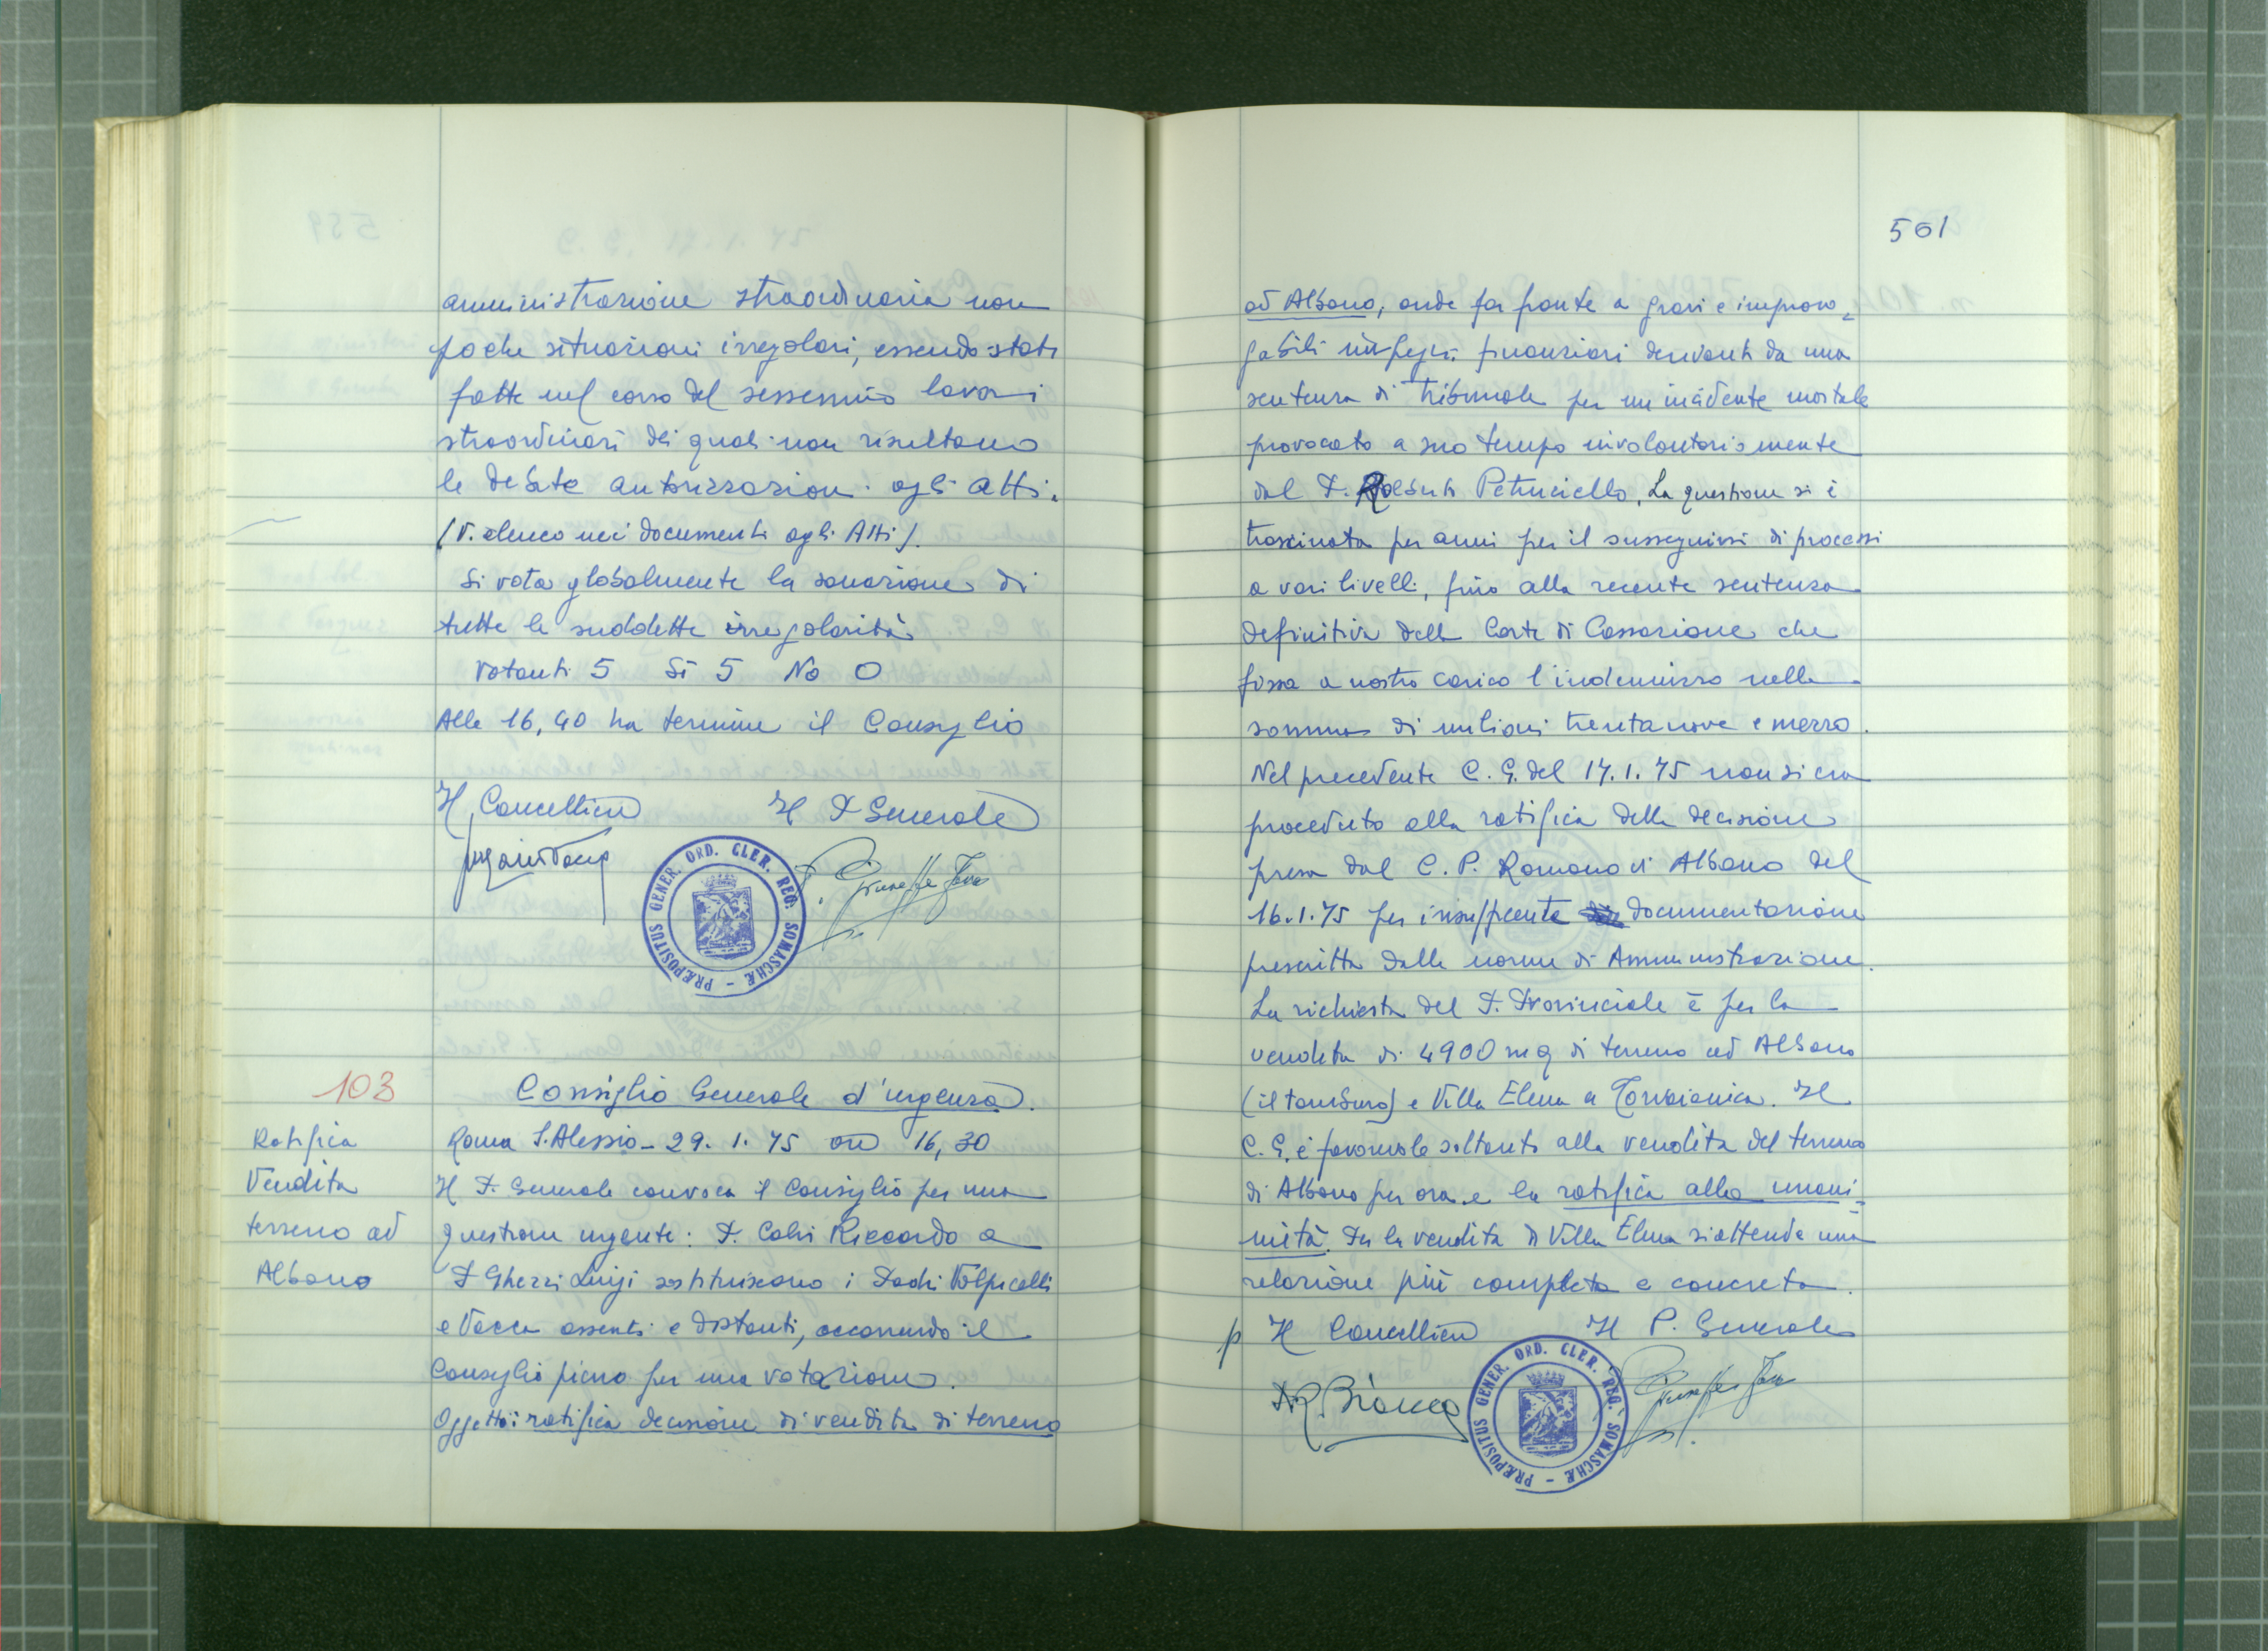 amministrazione straordinaria non
poche situazioni irregolari, essendo stati
fatti nel corso del sessennio lavori
straordinari dei quali non risultano
le debite autorizzazioni agli atti.
(V. elenco nei documenti agli Atti).
Si vota globalmente la sanazione di
tutte le suddette irregolarità
Votanti 5 Si 5 No 0
Alle 16,40 ha termine il Consiglio
Il Cancelliere Il P. Generale
PRÆPOSITUS GENER. ORD. CLER. REG. SOMASCHÆ
103
Ratifica
Vendita
terreno ad
Albano
Consiglio Generale d'urgenza.
Roma S. Alessio - 29. 1. 75 ore 16,30
Il P. Generale convoca il Consiglio per una
questione urgente: P. Calvi Riccardo e
P. Ghezzi Luigi sostituiscono i Padri Volpicelli
e Vacca assenti e distanti, occorrendo il
Consiglio pieno per una votazione.
Oggetto: ratifica decisione di vendita di terreno
501
ad Albano, onde far fronte a gravi e improro=
gabili impegni finanziari derivanti da una
sentenza di Tribunale per un incidente mortale
provocato a suo tempo involontariamente
dal P. Petruciello. La questione si è
trascinata per anni per il susseguirsi di processi
a vari livelli, fino alla recente sentenza
definitiva della Corte di Cassazione che
fissa a nostro carico l'indennizzo nella
somma di milioni trentanove e mezzo.
Nel precedente C. G. del 17.1.75 non si era
proceduto alla ratifica della decisione
presa dal C. P. Romano di Albano del
16.1.75 per insufficiente documentazione
prescritta dalle norme di Amministrazione.
La richiesta del P. Provinciale è per la
vendita di 4900 mq di terreno ad Albano
e Villa Elena a Torvaianica. Il
C. G. è favorevole soltanto alla vendita del terreno
di Albano per ora e la ratifica alla unani=
mità. Per la vendita di Villa Elena si attende una
relazione più completa e concreta.
p Il Cancelliere Il P. Generale
PRÆPOSITUS GENER. ORD. CLER. REG. SOMASCHÆ